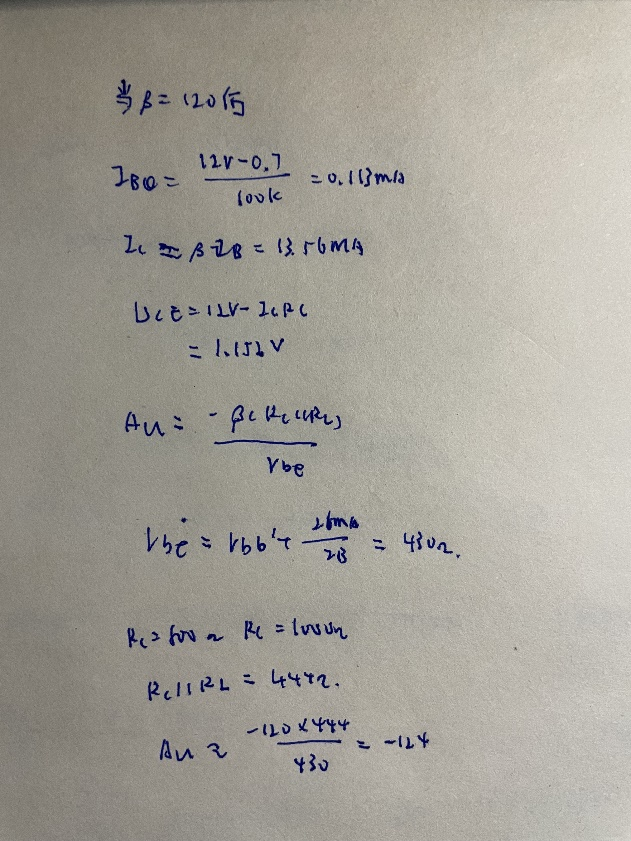 当 β = 120 后
I_BQ = (12V - 0.7) / 100k = 0.113mA
I_C ≈ β I_B = 13.56mA
U_CE = 12V - I_C R_C
= 1.152V
Au = -β(R_C // R_L) / r_be
r_be = r_bb' + 26mA / I_B = 430Ω.
R_C = 800Ω R_L = 1000Ω
R_C // R_L = 444Ω.
Au ≈ (-120 × 444) / 430 = -124